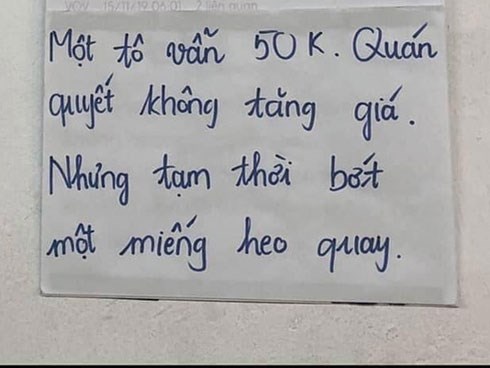 Một tô vẫn 50K. Quán
quyết không tăng giá.
Nhưng tạm thời bớt
một miếng heo quay.